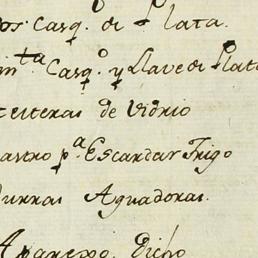 os Casq.o de Plata.
in ta Casq.o y Llave de Plat
eiteras de Vidrio
astro p.a Escardar Trigo
urras Aguadoras.
Aparexo dicho